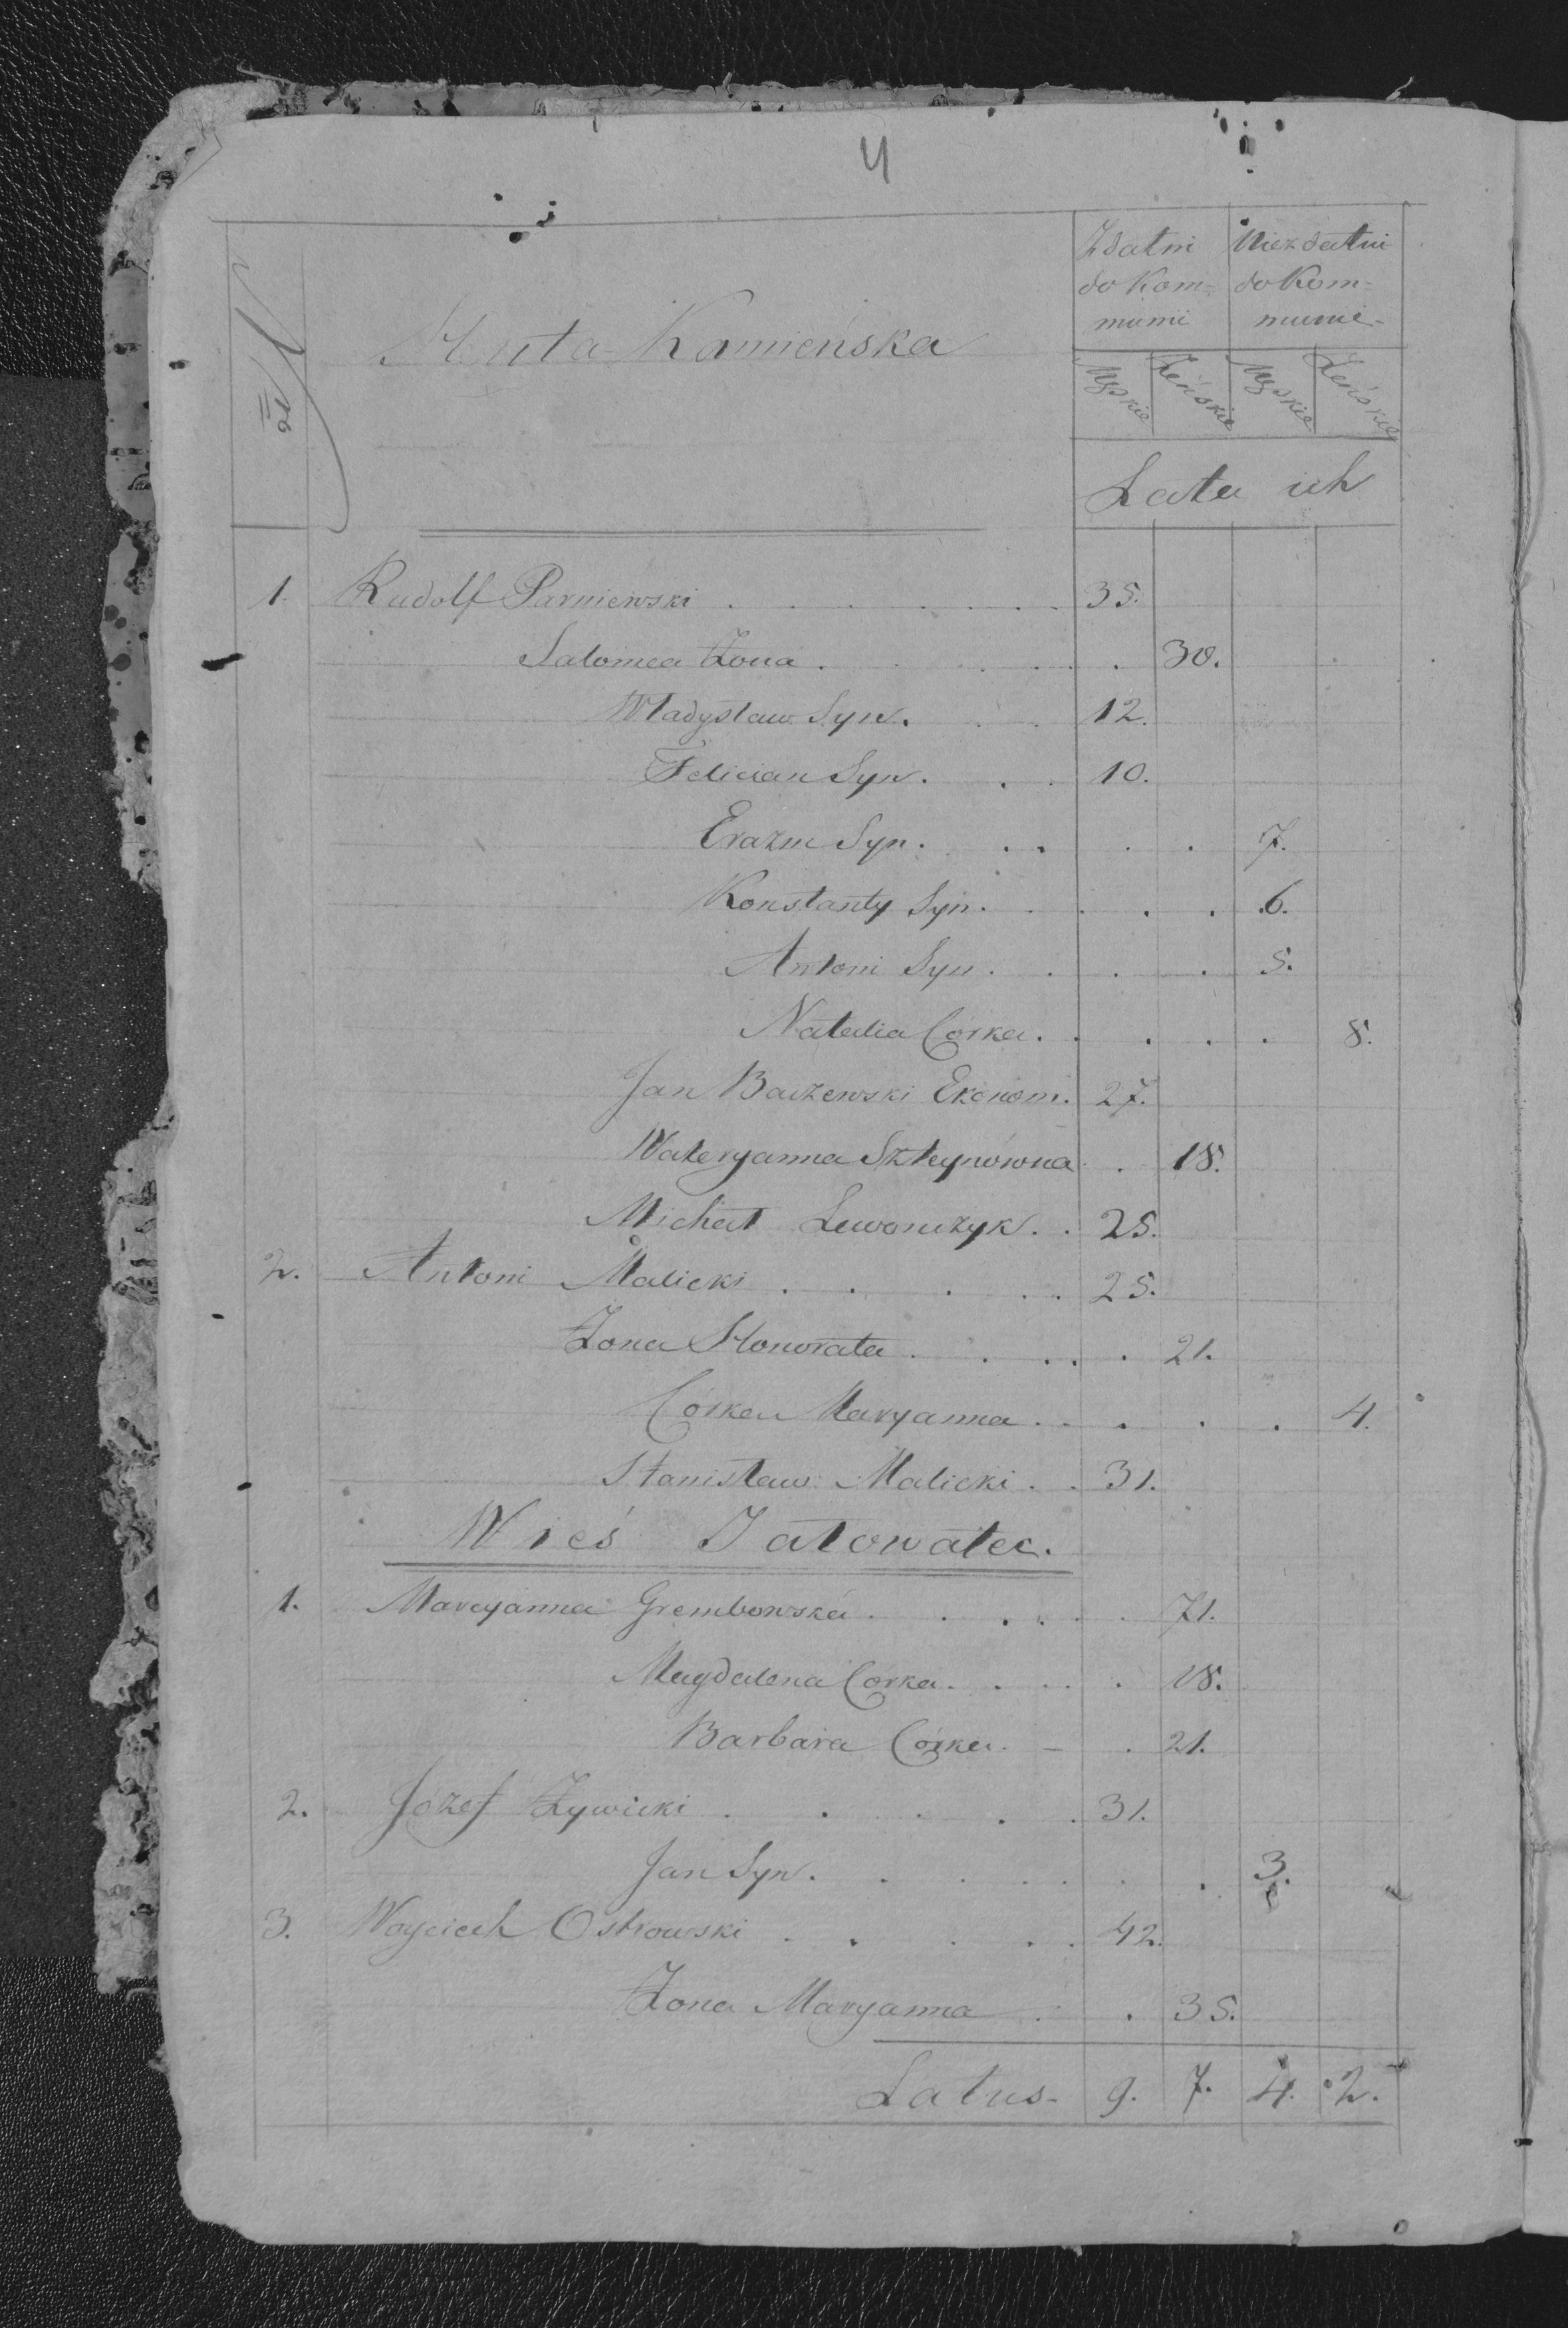 4
Zdatni Niezdatni
do Kom= do Kom=
munii munii
Męskie Żeńskie Męskie Żeńskie
Lata ich
№
Huta-Kamieńska
1. Rudolf Parniewski . . . . . . . 35.
Salomea Żona . . . . . 30.
Władysław Syn. . . 12.
Felician Syn. . . 10.
Erazm Syn. . . . . 7.
Konstanty Syn. . . . . 6.
Antoni Syn. . . . . 5.
Natalia Córka. . . . . 8.
Jan Baczewski Ekonom. 27.
Waleryanna Szteynówna . 18.
Michał Lewonczyk. . 25.
2. Antoni Malicki . . . . . 25.
Żona Honorata . . . . . 21.
Córka Maryanna . . . . . 4.
Stanisław Malicki . . 31.
Wieś Jałowatec.
1. Maryanna Grembowska . . . . . . 71.
Magdalena Córka. . . . . 18.
Barbara Córka. - . 21.
2. Józef Żywicki . . . . . 31.
Jan Syn. . . . . . . 3.
3. Woyciech Ostrowski . . . . . 42.
Żona Maryanna . . 35.
Latus- 9. 7. 4. 2.